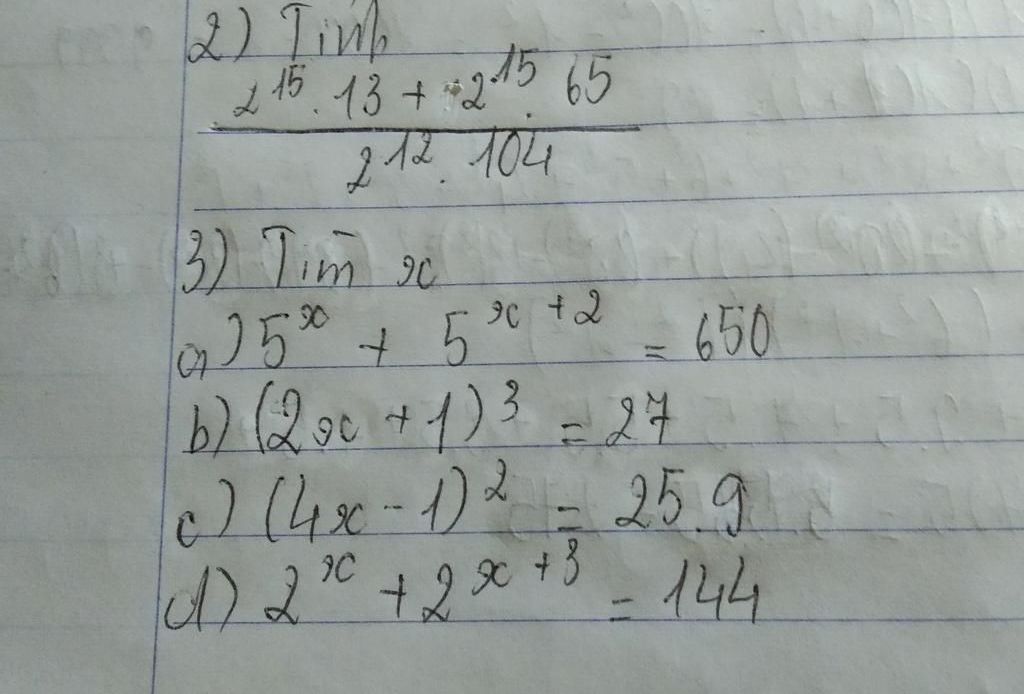 2) Tính
2^15 . 13 + 2^15 . 65
2^12 . 104
3) Tìm x
a) 5^x + 5^(x+2) = 650
b) (2x + 1)^3 = 27
c) (4x - 1)^2 = 25.9
d) 2^x + 2^(x+3) = 144